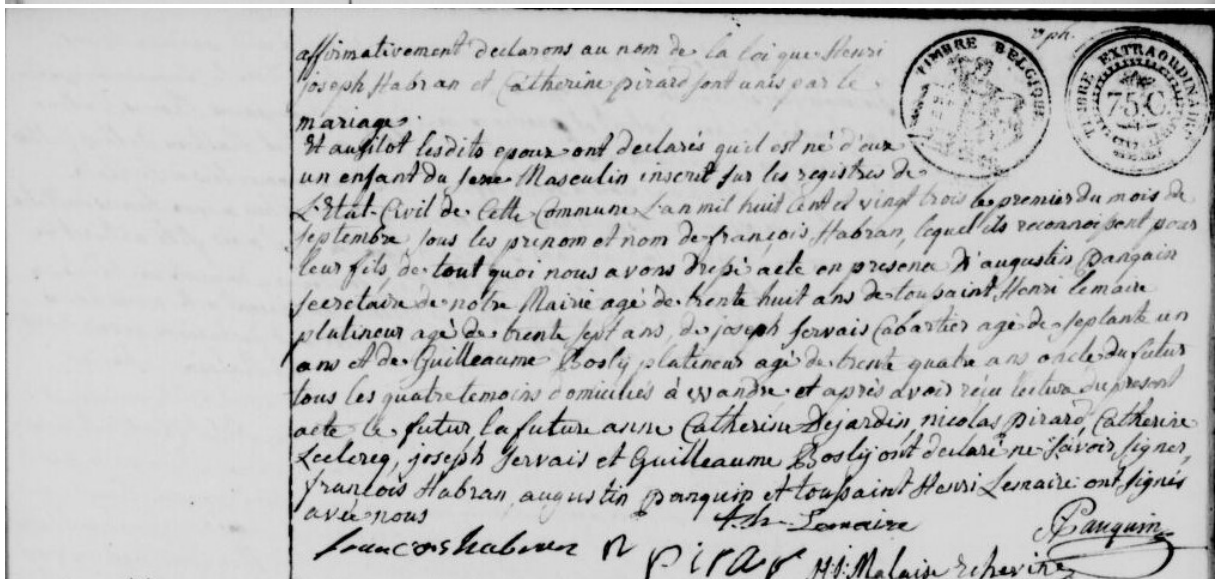 affirmativement declarons au nom de la loi que Henri
joseph Habran et Catherine pirard sont unis par le
mariage.
Et ausitot lesdits epoux ont declarés qu'il est né d'eux
un enfant du sexe Masculin inscrit sur les registres de
L'Etat-Civil de Cette Commune L'an mil huit cent et vingt trois le premier du mois de
septembre sous les prenom et nom de françois Habran, lequel ils reconnoissent pour
leur fils, de tout quoi nous avons dressé acte en presence d'augustin panquin
secretaire de notre Mairie agé de trente huit ans de tousaint Henri lemaire
platineur agé de trente sept ans, de joseph servais Cabartier agé de septante un
ans et de Guilleaume Bosly platineur agé de trente quatre ans oncle du futur
tous les quatre temoins domiciliés à wandre et après avoir reçu lectura du present
acte le futur la future anne Catherine Dejardin, nicolas pirard, Catherine
Leclercq, joseph servais et Guilleaume Bosly ont declaré ne savoir signer,
françois Habran, augustin panquin et toussaint Henri Lemaire ont signés
avec nous
t. h. Lemaire
Panquin
francois habran n pirar H: J: Malaise Echevin
TIMBRE BELGIQUE
TIMBRE EXTRAORDINAIRE
75.C